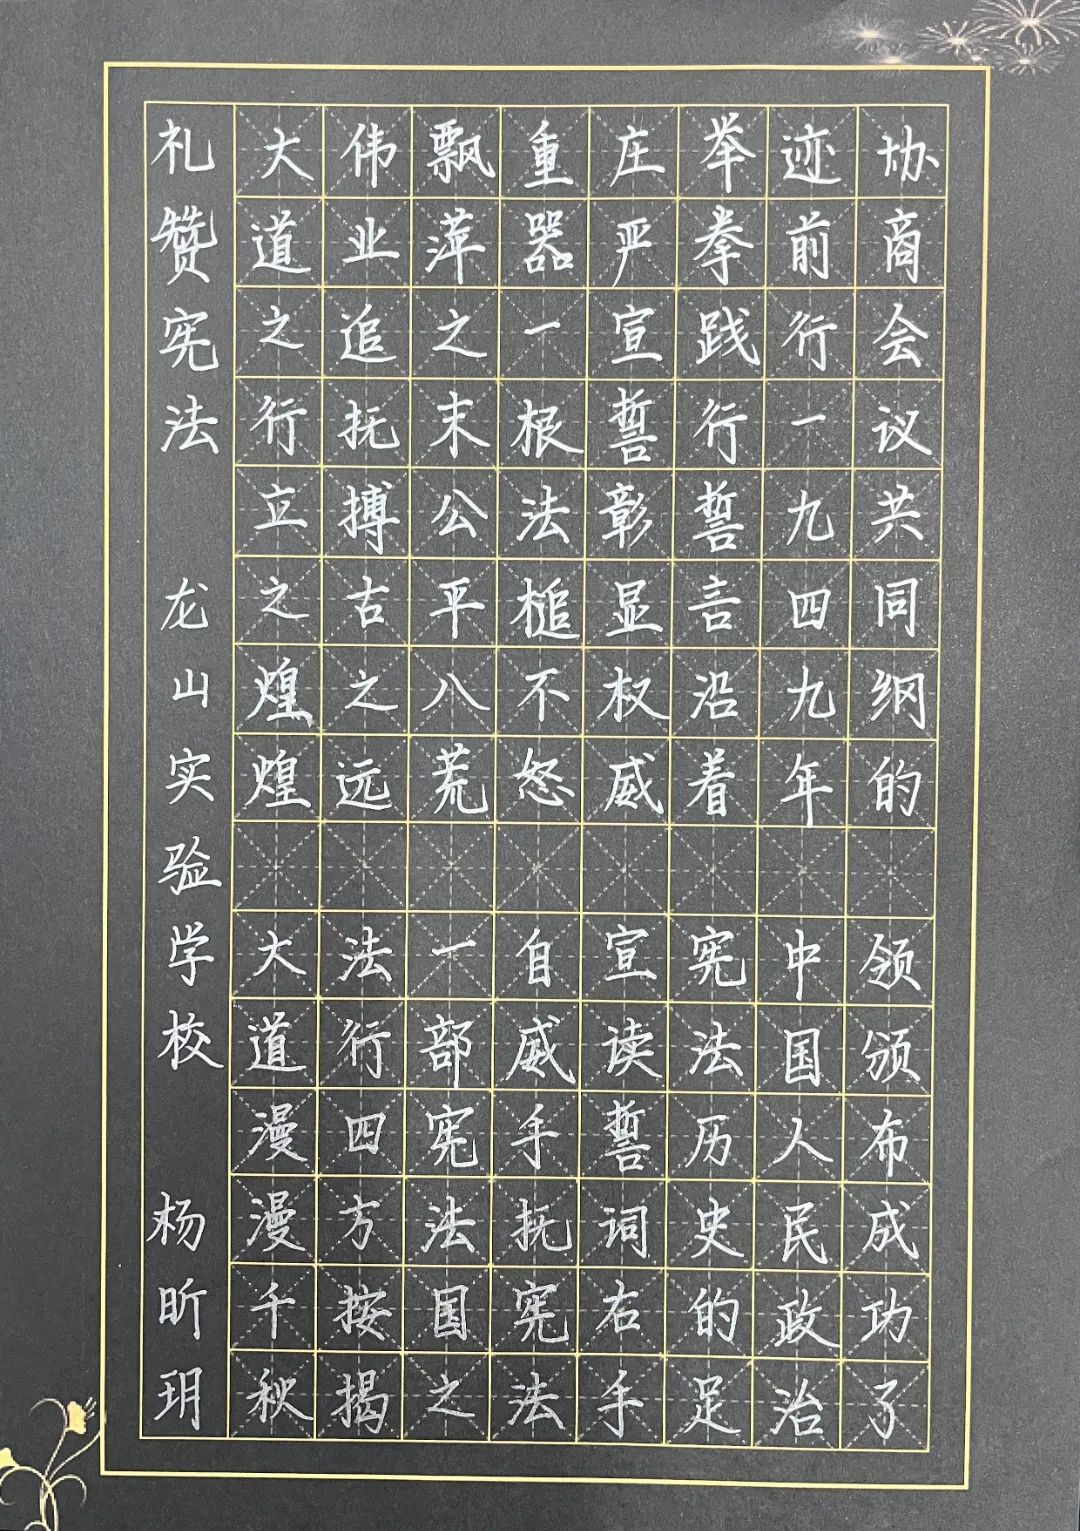 礼赞宪法 龙山实验学校 杨昕玥
大道之行立之煌煌 大道漫漫千秋
伟业追抚搏古之远 法行四方按揭
飘萍之末公平八荒 一部宪法国之
重器一根法槌不怒 自威手抚宪法
庄严宣誓彰显权威 宣读誓词右手
举拳践行誓言沿着 宪法历史的足
迹前行一九四九年 中国人民政治
协商会议共同纲的 领颁布成功了